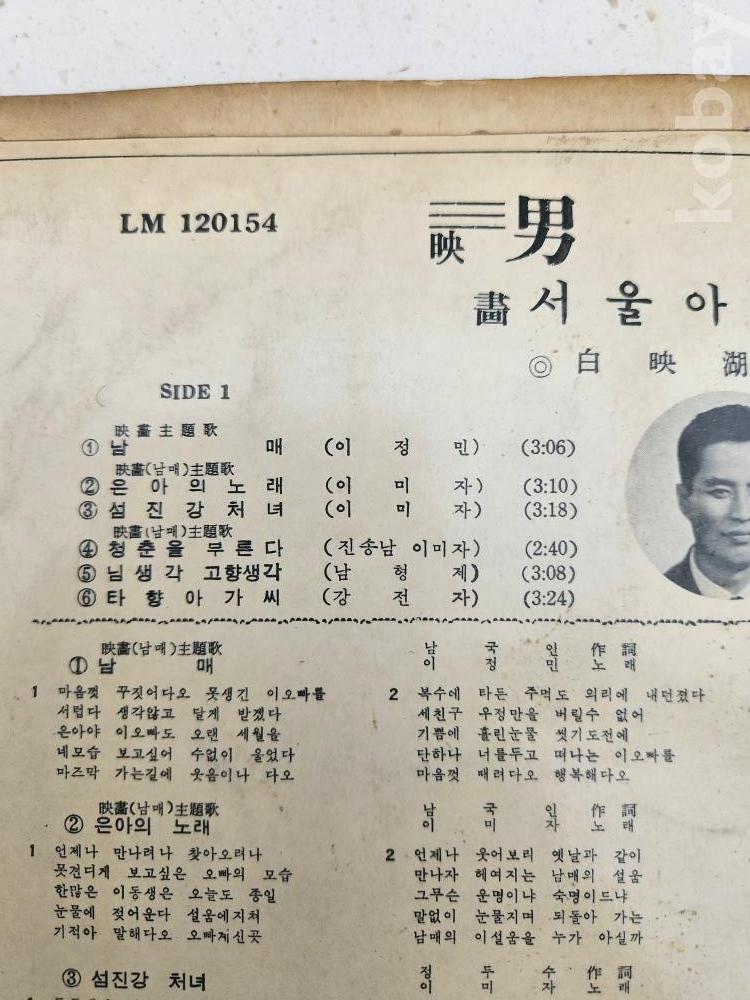 kobay
LM 120154
映 男
畵 서 울 아
◎ 白 映 湖
SIDE 1
映畵主題歌
① 남 매 (이 정 민) (3:06)
映畵(남매)主題歌
② 은 아 의 노 래 (이 미 자) (3:10)
③ 섬 진 강 처 녀 (이 미 자) (3:18)
映畵(남매)主題歌
④ 청춘을 부른다 (진송남 이미자) (2:40)
⑤ 님생각 고향생각 (남 형 제) (3:08)
⑥ 타 향 아 가 씨 (강 전 자) (3:24)
映畵(남매)主題歌
① 남 매
남 국 인 作 詞
이 정 민 노 래
1 마음껏 꾸짖어다오 못생긴 이오빠를
서럽다 생각않고 달게 받겠다
은아야 이오빠도 오랜 세월을
네모습 보고싶어 수없이 울었다
마즈막 가는길에 웃음이나 다오
2 복수에 타든 주먹도 의리에 내던졌다
세친구 우정만을 버릴수 없어
기쁨에 흘린눈물 씻기도전에
단하나 너를두고 떠나는 이오빠를
마음껏 때려다오 행복해다오
映畵(남매)主題歌
② 은아의 노래
남 국 인 作 詞
이 미 자 노 래
1 언제나 만나려나 찾아오려나
못견디게 보고싶은 오빠의 모습
한많은 이동생은 오늘도 종일
눈물에 젖어운다 설움에지쳐
기적아 말해다오 오빠계신곳
2 언제나 웃어보리 옛날과 같이
만나자 헤여지는 남매의 설움
그무슨 운명이냐 숙명이드냐
말없이 눈물지며 되돌아 가는
남매의 이설움을 누가 아실까
③ 섬진강 처녀
정 두 수 作 詞
이 미 자 노 래
1